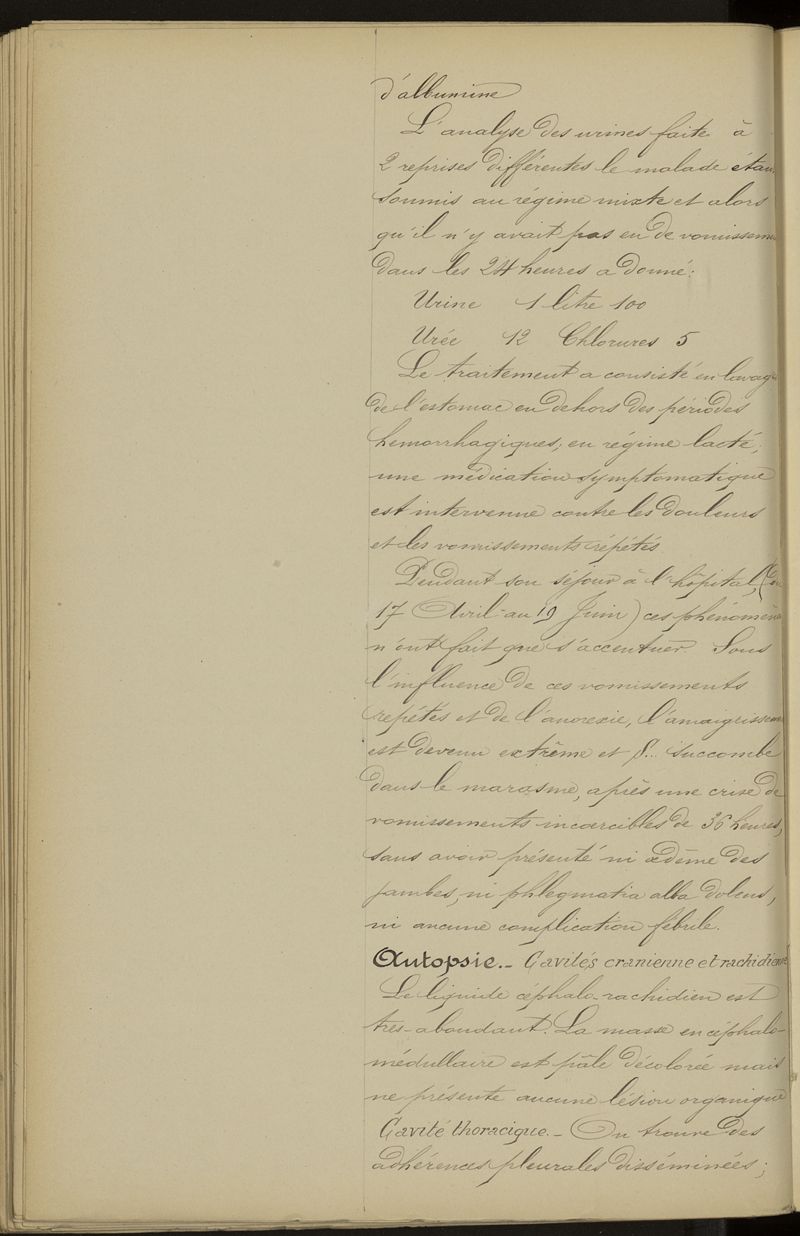 d'albumine
L'analyse des urines faite à
2 reprises différentes le malade étan
soumis au régime mixte et alors
qu'il n'y avait pas eu de vomisseme
dans les 24 heures a donné:
Urine 1 litre 100
Urée 12 Chlorures 5
Le traitement a consisté en lavag
de l'estomac en dehors des périodes
hemorrhagiques, en régime lacté;
une médication symptomatique
est intervenue contre les douleurs
et les vomissements répétés
Pendant son séjour à l'hôpital, (
17 Avril au 19 Juin) ces phénomèn
n'ont fait que s'accentuer. Sous
l'influence de ces vomissements
repétés et de l'anorexie, l'amaigrisseme
est devenu extrême et S... succombe
dans le marasme, après une crise de
vomissements incoercibles de 36 heures,
sans avoir présenté ni œdème des
jambes, ni phlegmatia alba dolens,
ni aucune complication febrile.
Autopsie. – Cavités cranienne et rachidienne
Le liquide céphalo-rachidien est
très-abondant. La masse encéphalo-
médullaire est pâle décolorée mais
ne présente aucune lésion organique
Cavité thoracique. – On trouve des
adhérences pleurales disséminées;